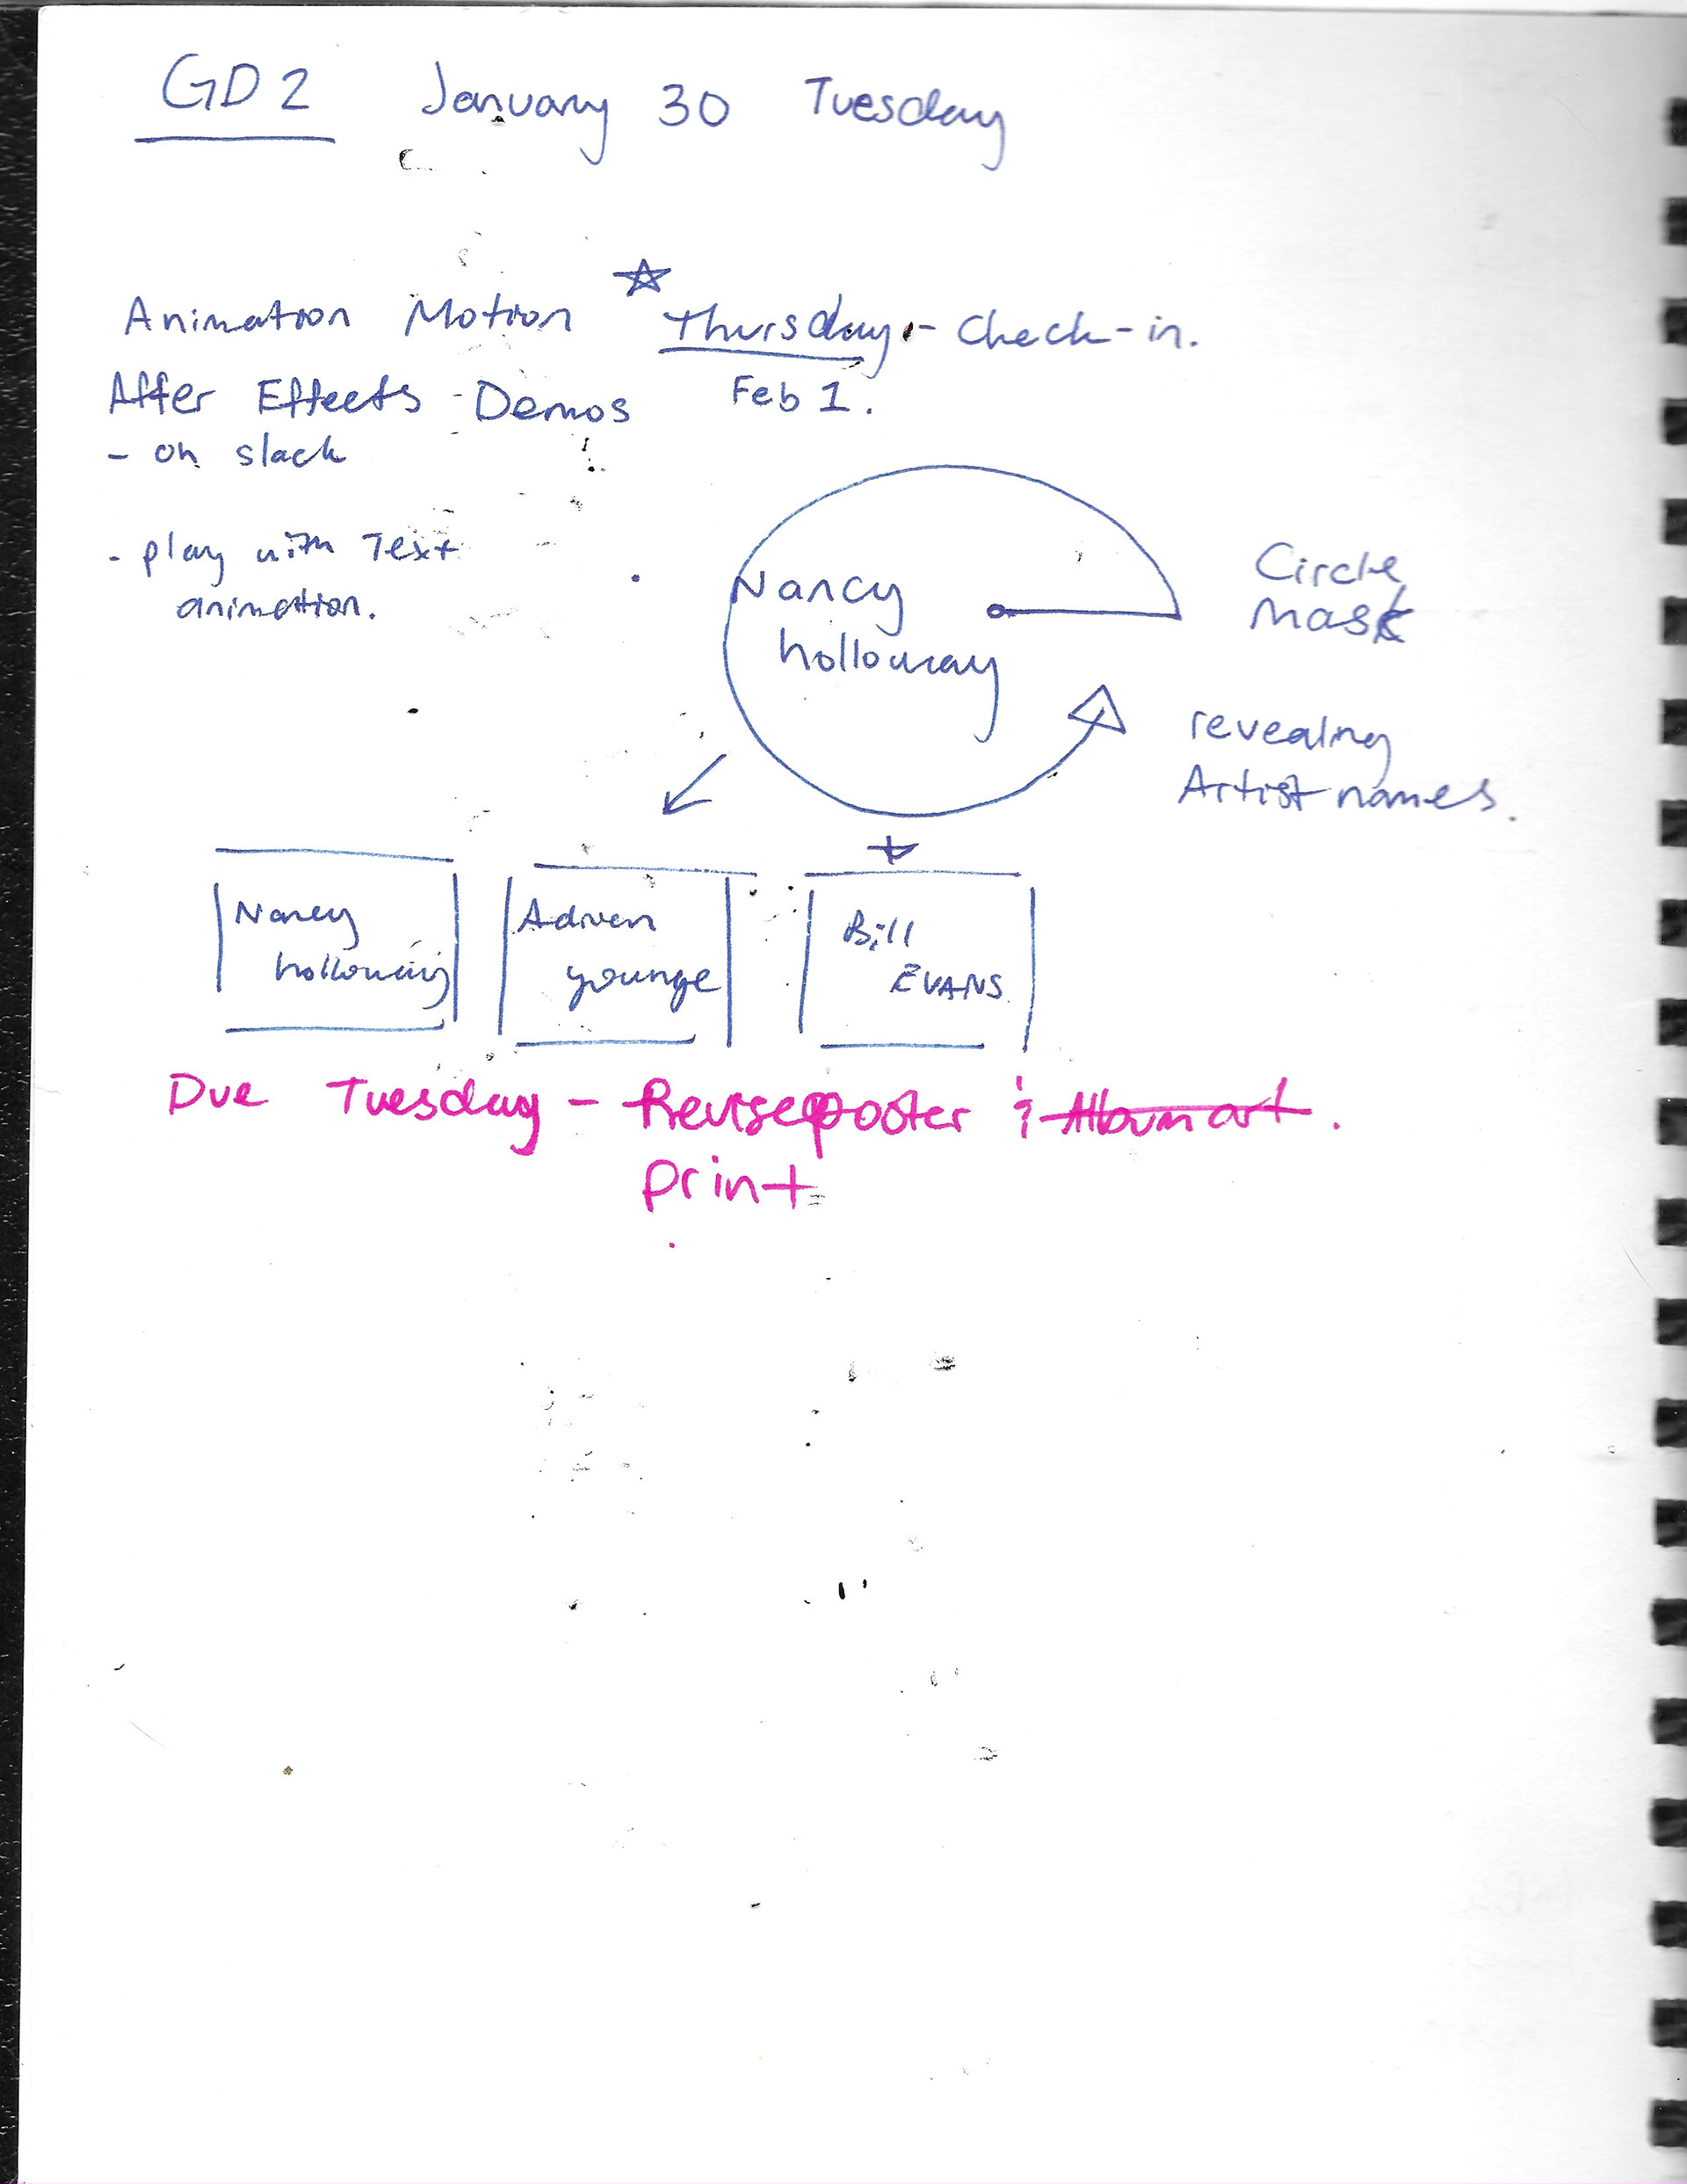 GD2 January 30 Tuesday
Animation Motion ☆ Thursday - Check-in.
Feb 1.
After Effects - Demos
- on slack
- play with Text
animation.
Nancy
holloway
Circle
Mask
revealing
Artist names.
Nancy
holloway
Adrien
younge
Bill
EVANS
Due Tuesday - Revise poster & Album art.
print